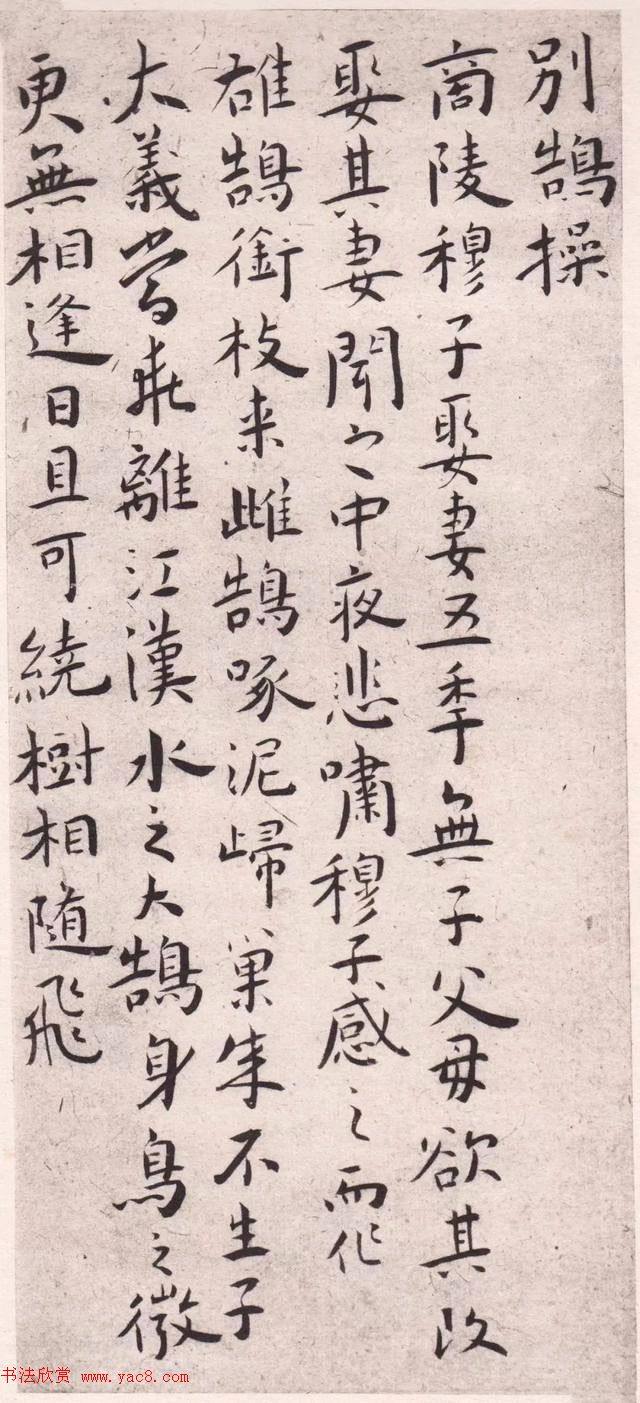 別鵠操
商陵穆子娶妻五秊無子父母欲其改
娶其妻聞之中夜悲嘯穆子感之而作
雄鵠銜枝来雌鵠啄泥歸巢成不生子
大義當乖離江漢水之大鵠身鳥之微
更無相逢日且可繞樹相隨飛
书法欣赏 www.yac8.com